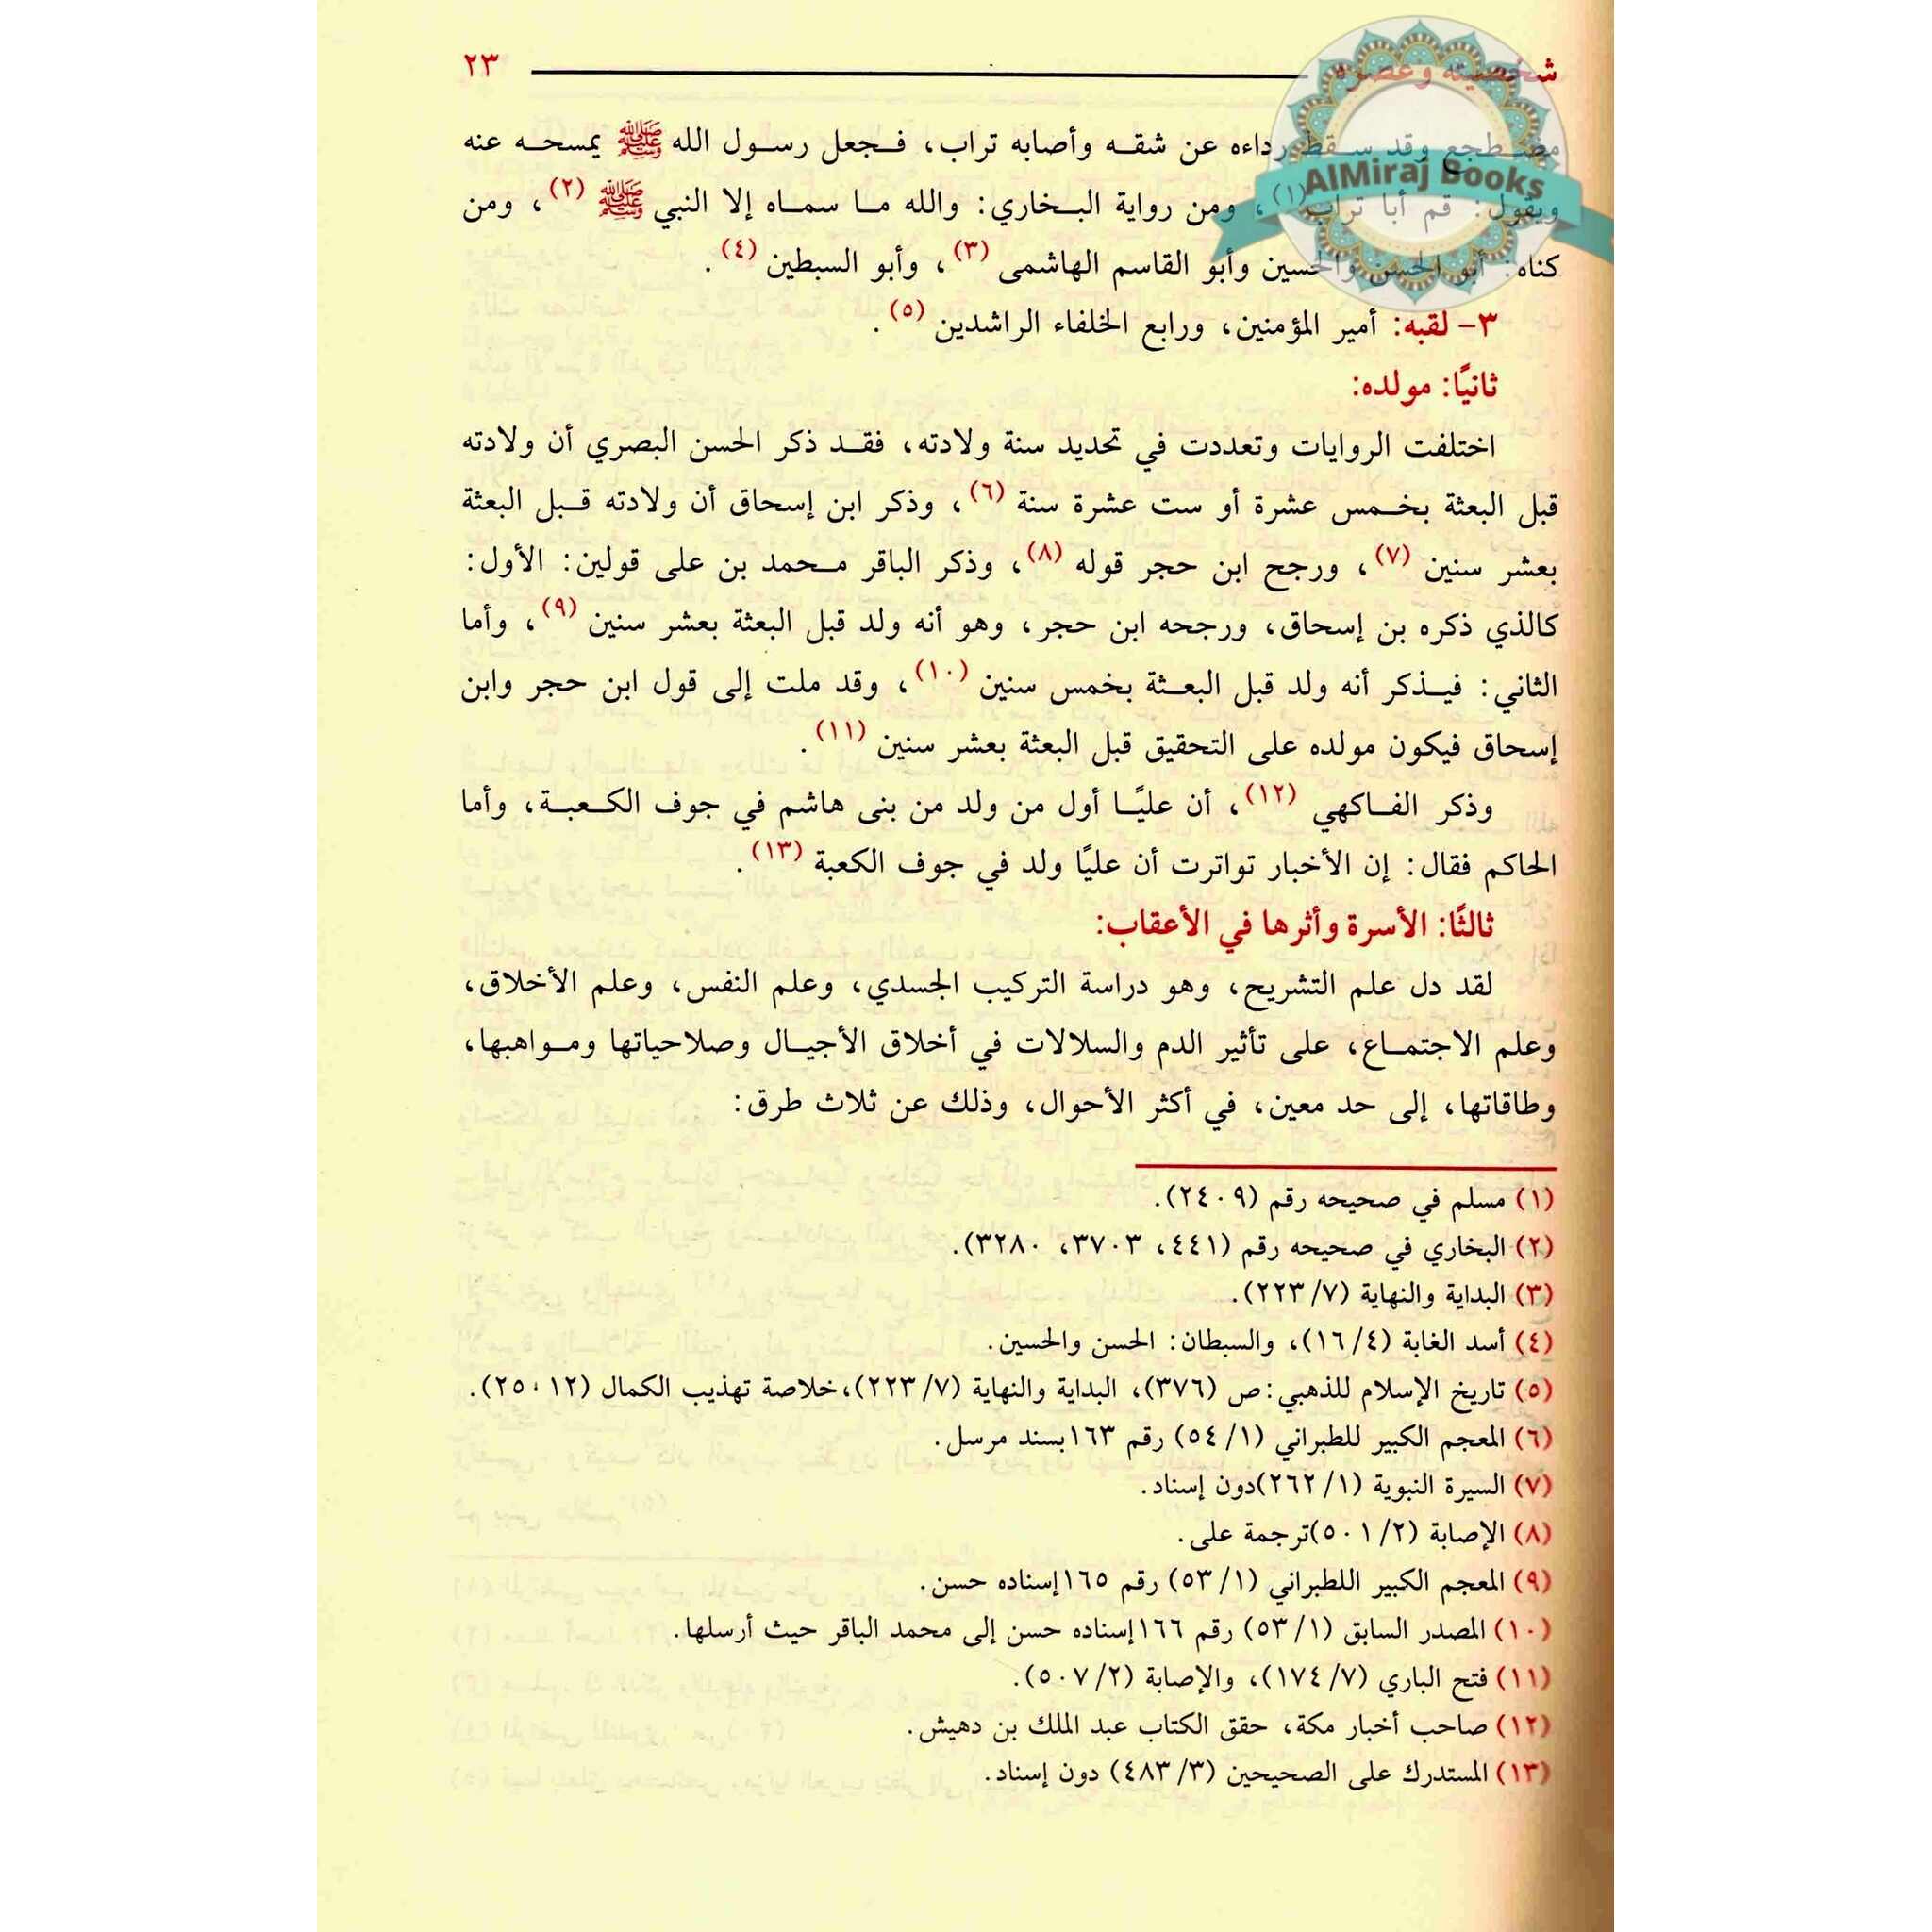 شخصيته وعصره ٢٣
AlMiraj Books
مضطجع وقد سقط رداءه عن شقه وأصابه تراب، فجعل رسول الله ﷺ يمسحه عنه
ويقول: قم أبا تراب(١)، ومن رواية البخاري: والله ما سماه إلا النبي ﷺ (٢)، ومن
كناه: أبو الحسن والحسين وأبو القاسم الهاشمى (٣)، وأبو السبطين (٤).
٣- لقبه: أمير المؤمنين، ورابع الخلفاء الراشدين (٥).
ثانيًا: مولده:
اختلفت الروايات وتعددت في تحديد سنة ولادته، فقد ذكر الحسن البصري أن ولادته
قبل البعثة بخمس عشرة أو ست عشرة سنة (٦)، وذكر ابن إسحاق أن ولادته قبل البعثة
بعشر سنين (٧)، ورجح ابن حجر قوله (٨)، وذكر الباقر محمد بن على قولين: الأول:
كالذي ذكره بن إسحاق، ورجحه ابن حجر، وهو أنه ولد قبل البعثة بعشر سنين (٩)، وأما
الثاني: فيذكر أنه ولد قبل البعثة بخمس سنين (١٠)، وقد ملت إلى قول ابن حجر وابن
إسحاق فيكون مولده على التحقيق قبل البعثة بعشر سنين (١١).
وذكر الفاكهي (١٢)، أن عليًا أول من ولد من بنى هاشم في جوف الكعبة، وأما
الحاكم فقال: إن الأخبار تواترت أن عليًا ولد في جوف الكعبة (١٣).
ثالثًا: الأسرة وأثرها في الأعقاب:
لقد دل علم التشريح، وهو دراسة التركيب الجسدي، وعلم النفس، وعلم الأخلاق،
وعلم الاجتماع، على تأثير الدم والسلالات في أخلاق الأجيال وصلاحياتها ومواهبها،
وطاقاتها، إلى حد معين، في أكثر الأحوال، وذلك عن ثلاث طرق:
(١) مسلم في صحيحه رقم (٢٤٠٩).
(٢) البخاري في صحيحه رقم (٤٤١، ٣٧٠٣، ٣٢٨٠).
(٣) البداية والنهاية (٧/ ٢٢٣).
(٤) أسد الغابة (٤/ ١٦)، والسبطان: الحسن والحسين.
(٥) تاريخ الإسلام للذهبي: ص (٣٧٦)، البداية والنهاية (٧/ ٢٢٣)، خلاصة تهذيب الكمال (٢٥٠١٢).
(٦) المعجم الكبير للطبراني (١/ ٥٤) رقم ١٦٣بسند مرسل.
(٧) السيرة النبوية (١/ ٢٦٢)دون إسناد.
(٨) الإصابة (٢/ ٥٠١)ترجمة على.
(٩) المعجم الكبير اللطبراني (١/ ٥٣) رقم ١٦٥إسناده حسن.
(١٠) المصدر السابق (١/ ٥٣) رقم ١٦٦إسناده حسن إلى محمد الباقر حيث أرسلها.
(١١) فتح الباري (٧/ ١٧٤)، والإصابة (٢/ ٥٠٧).
(١٢) صاحب أخبار مكة، حقق الكتاب عبد الملك بن دهيش.
(١٣) المستدرك على الصحيحين (٣/ ٤٨٣) دون إسناد.